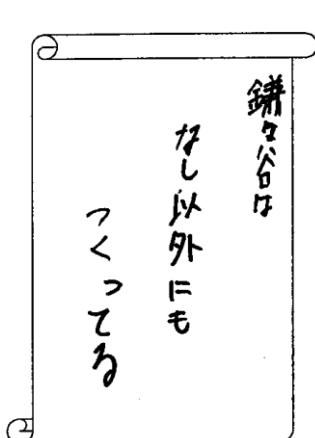 鎌ヶ谷は
なし以外にも
つくってる